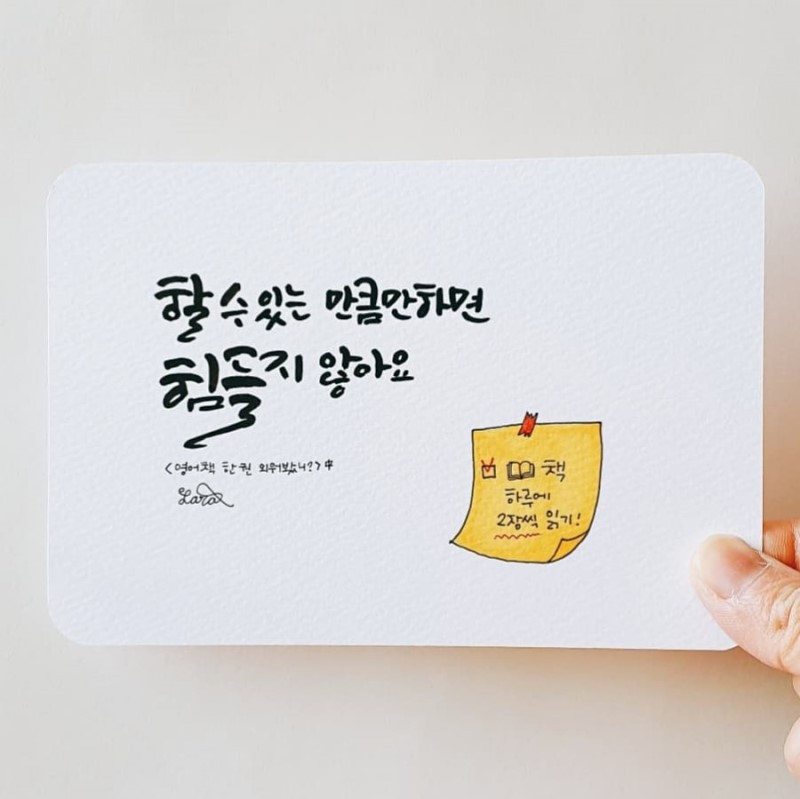 할 수 있는 만큼만하면
힘들지 않아요
<영어책 한 권 외워봤니?> 中
Lara
책
하루에
2장씩 읽기!